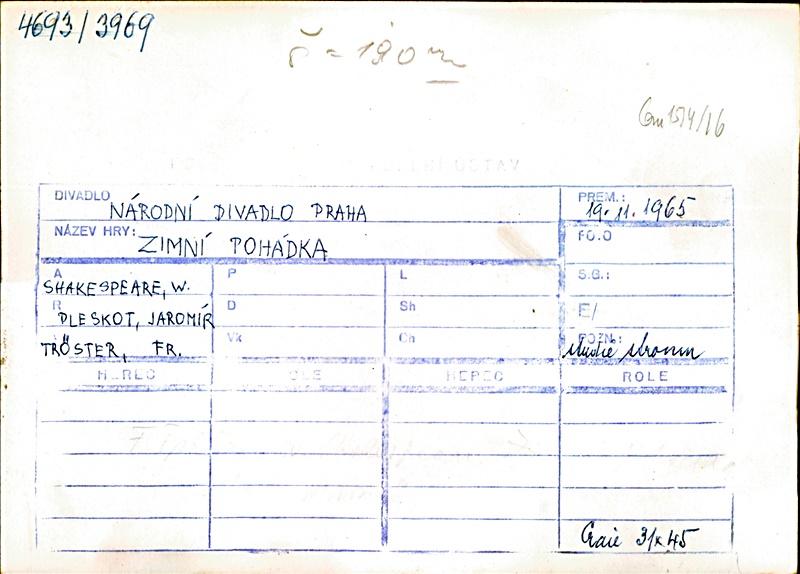 4693/3969
š = 190 m
15/4/16
ÚSTAV
DIVADLO NÁRODNÍ DIVADLO PRAHA
PREM.: 19. 11. 1965
NÁZEV HRY: ZIMNÍ POHÁDKA
FO.O
A SHAKESPEARE, W.
P
L
S.G.:
R PLESKOT, JAROMÍR
D
Sh
E/
TRÖSTER, FR.
Vk
Ch
POZN.:
HEREC
ROLE
HEREC
ROLE
31x45